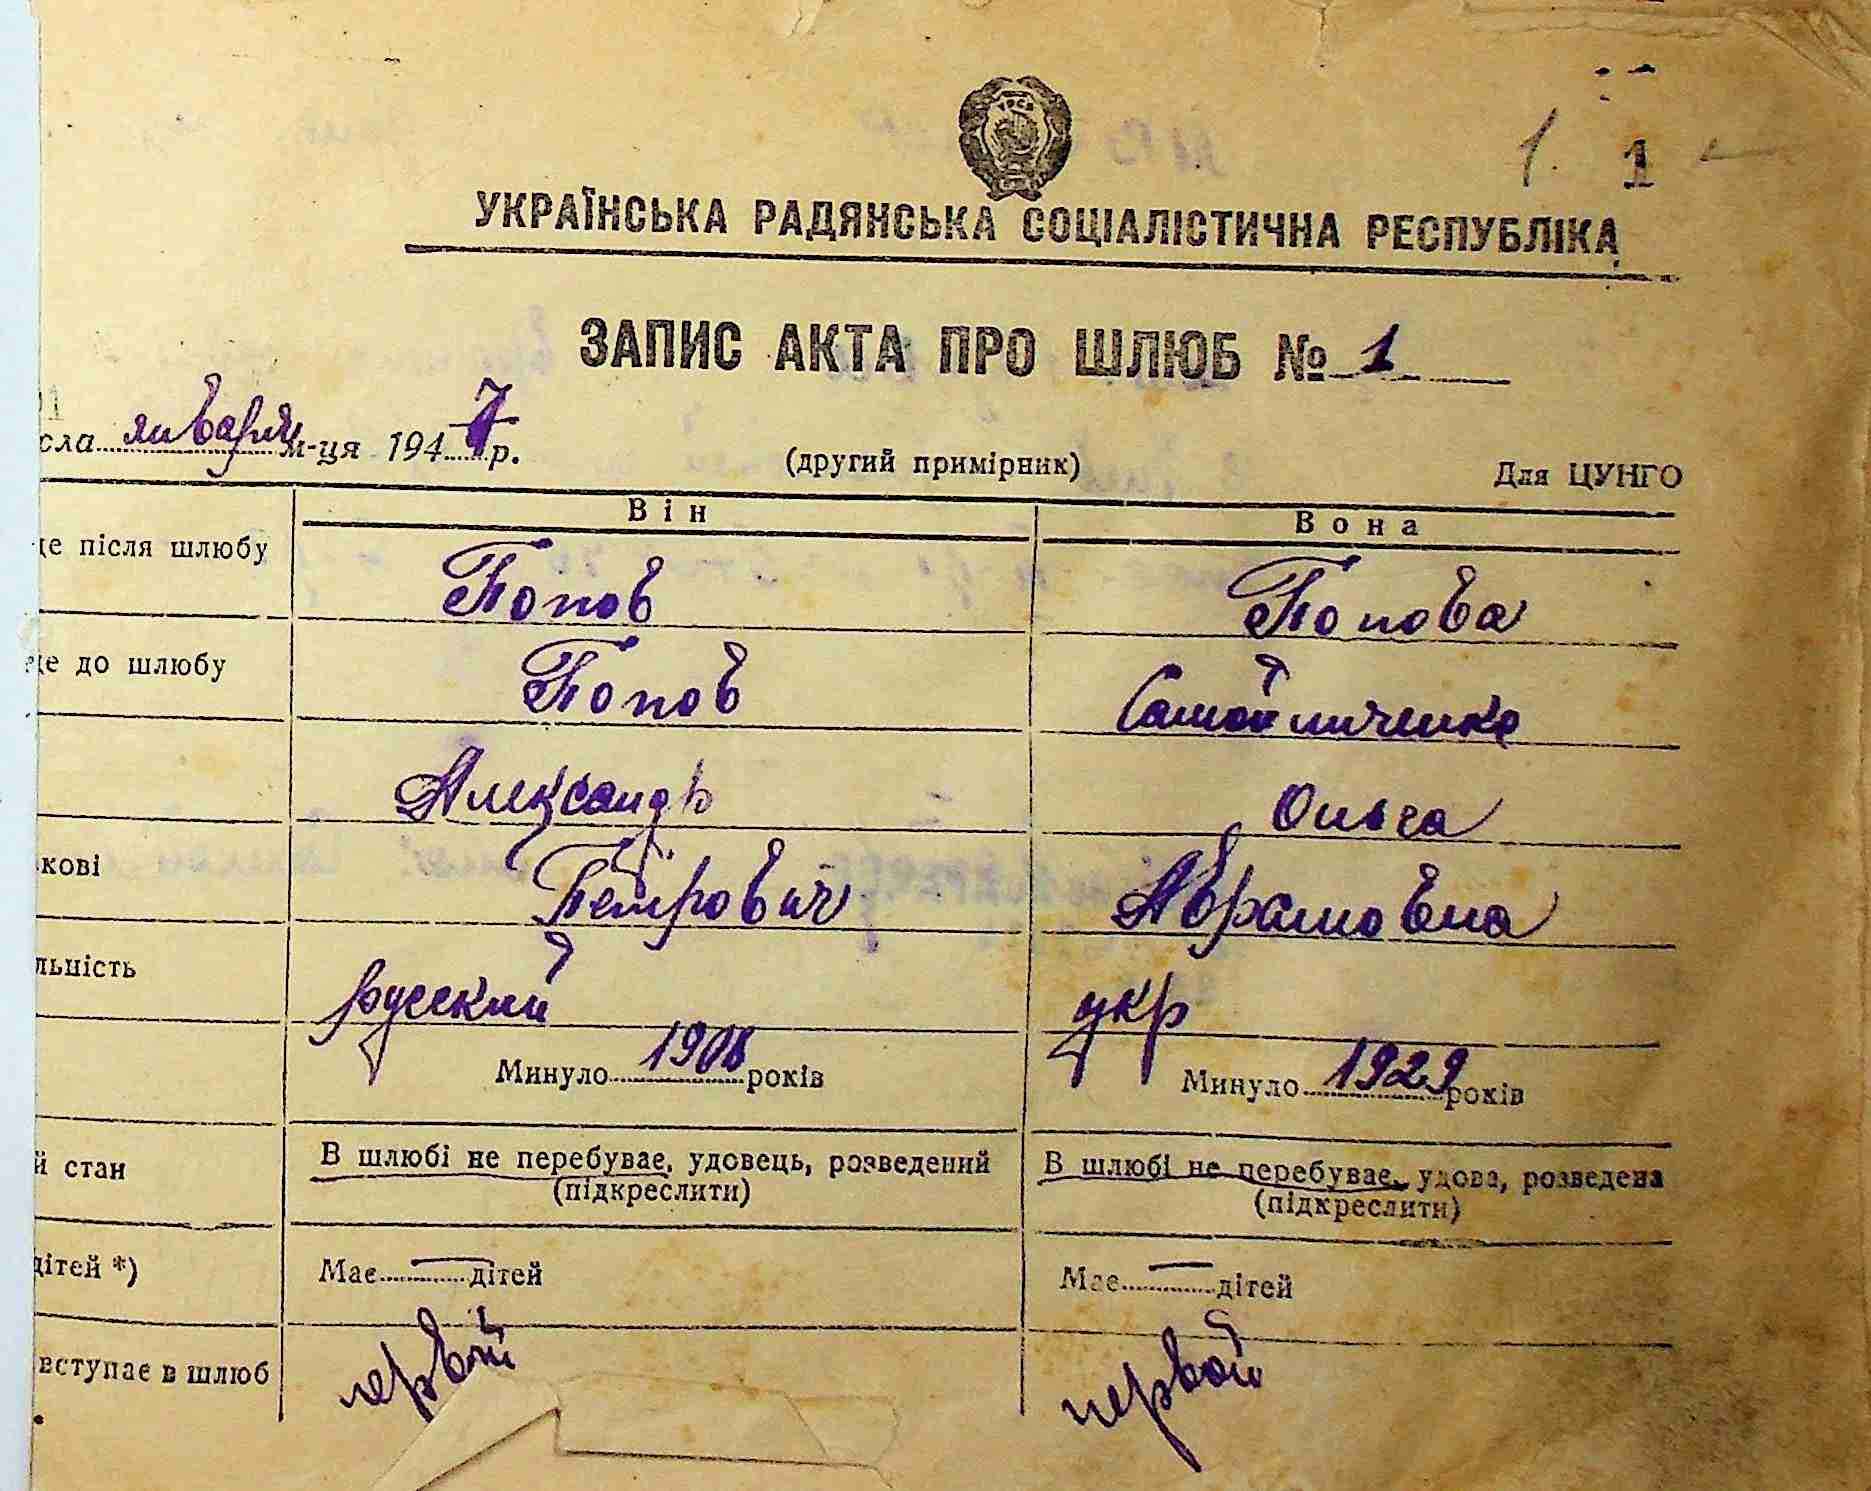 1. 1
УКРАЇНСЬКА РАДЯНСЬКА СОЦІАЛІСТИЧНА РЕСПУБЛІКА
ЗАПИС АКТА ПРО ШЛЮБ № 1
сла января м-ця 1947 р. (другий примірник) Для ЦУНГО
Він Вона
ще після шлюбу Попов Попова
ще до шлюбу Попов Самойличенко
Александр Ольга
кові Петрович Абрамовна
льність русский укр
Минуло 1908 років Минуло 1929 років
й стан В шлюбі не перебуває, удовець, розведений В шлюбі не перебуває, удова, розведена
(підкреслити) (підкреслити)
дітей *) Має — дітей Має — дітей
вступає в шлюб первой первой